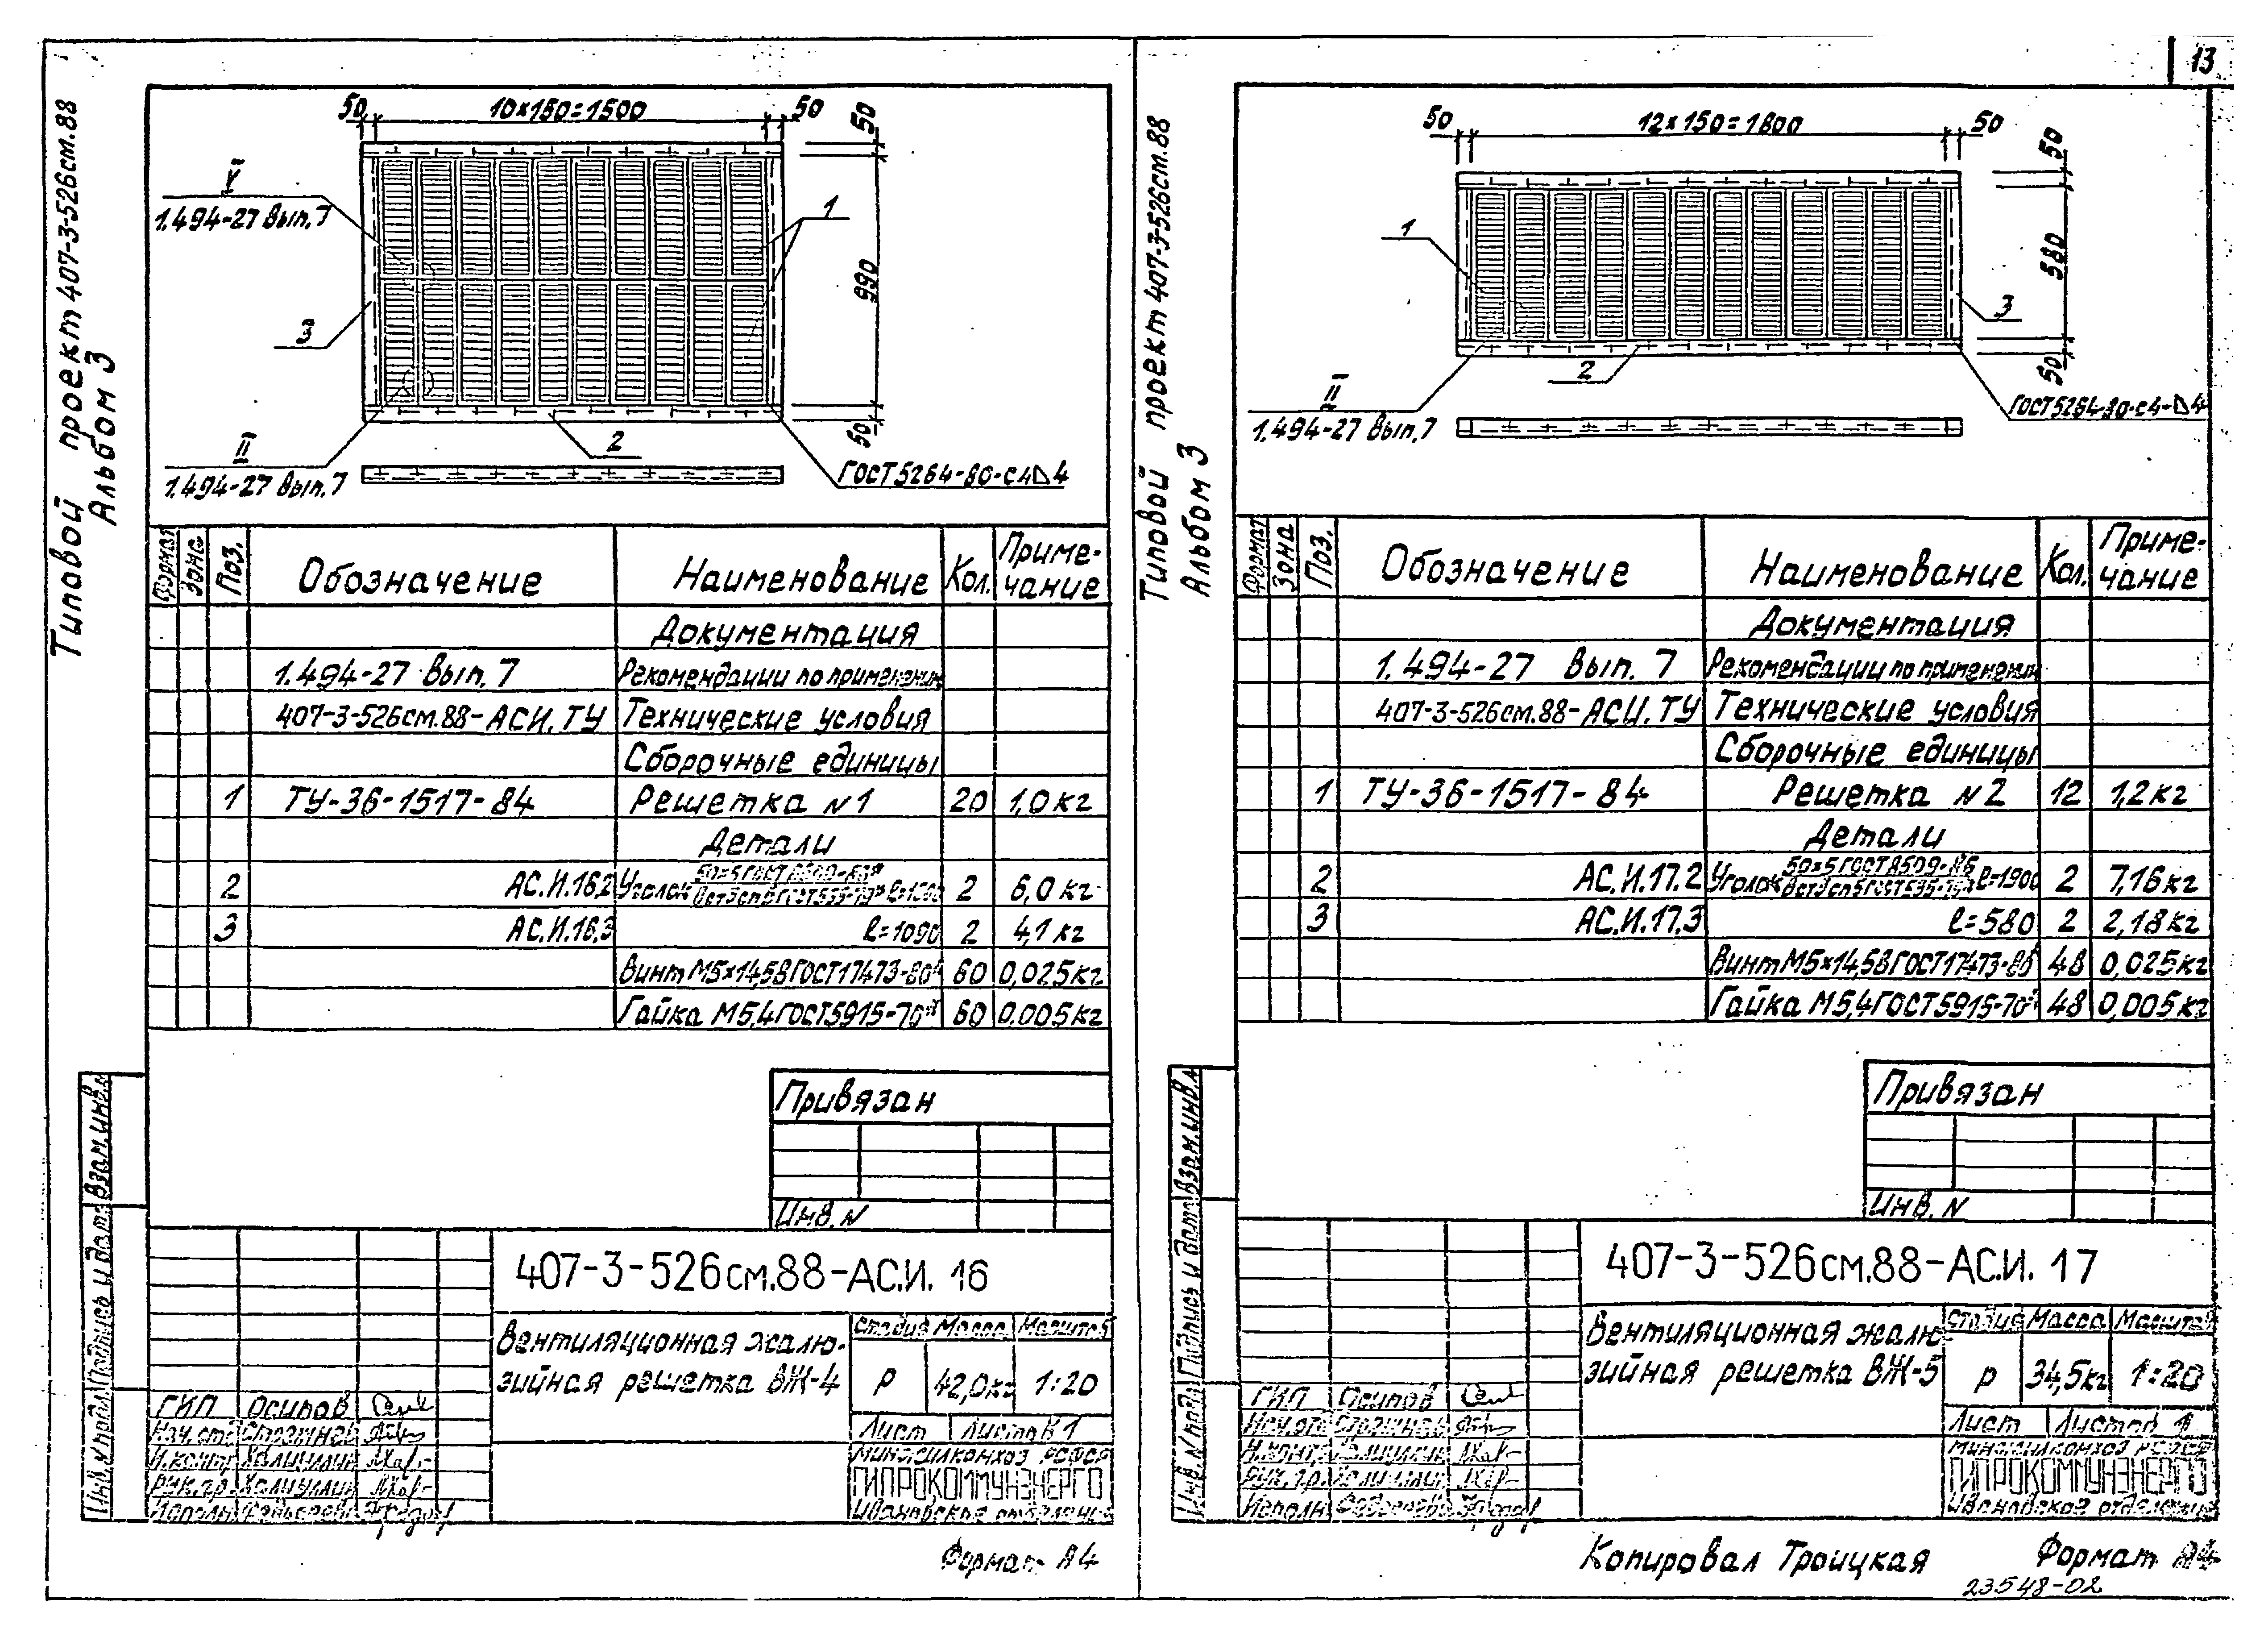 13
Типовой проект 407-3-526см.88
Альбом 3
50
10×150=1500
50
50
V
1.494-27 вып.7
1
990
3
50
II
1.494-27 вып.7
2
ГОСТ 5264-80-С4 4
Формат
Зона
Поз.
Обозначение
Наименование
Кол.
Приме-
чание
Документация
1.494-27 вып.7 Рекомендации по применению
407-3-526см.88-АС.И.ТУ Технические условия
Сборочные единицы
1 ТУ-36-1517-84 Решетка N1 20 1,0кг
Детали
2 АС.И.16.2 Уголок 2 6,0кг
3 АС.И.16.3 ℓ=1090 2 4,1кг
Винт М5×14,58 ГОСТ17473-80 60 0,025кг
Гайка М5,4 ГОСТ5915-70* 60 0,005кг
Привязан
Инв. N
407-3-526см.88-АС.И. 16
Вентиляционная жалю-
зийная решетка ВЖ-4
Стадия Масса Масштаб
Р 42,0кг 1:20
Лист Листов 1
ГИП Осипов
Нач. отд.
Н.контр. Халиуллин
Рук.гр. Халиуллин
Исполн.
Минжилкомхоз РСФСР
ГИПРОКОММУНЭНЕРГО
Ивановское отделение
Взам.инв.N
Подпись и дата
Инв. N подл.
Формат А4
Типовой проект 407-3-526см.88
Альбом 3
50
12×150=1800
50
50
1
580
3
2
50
II
1.494-27 вып.7
ГОСТ 5264-80-С4- 4
Формат
Зона
Поз.
Обозначение
Наименование
Кол.
Приме-
чание
Документация
1.494-27 вып. 7 Рекомендации по применению
407-3-526см.88-АС.И.ТУ Технические условия
Сборочные единицы
1 ТУ-36-1517-84 Решетка N2 12 1,2кг
Детали
2 АС.И.17.2 Уголок 50×5 ГОСТ 8509-86 ℓ=1900 2 7,16кг
3 АС.И.17.3 ℓ=580 2 2,18кг
Винт М5×14,58 ГОСТ17473-80 48 0,025кг
Гайка М5,4 ГОСТ5915-70* 48 0,005кг
Привязан
Инв. N
407-3-526см.88-АС.И. 17
Вентиляционная жалю-
зийная решетка ВЖ-5
Стадия Масса Масштаб
Р 34,5кг 1:20
Лист Листов 1
ГИП Осипов
Нач. отд.
Н.контр. Халиуллин
Рук.гр. Халиуллин
Исполн.
Минжилкомхоз РСФСР
ГИПРОКОММУНЭНЕРГО
Ивановское отделение
Взам.инв.N
Подпись и дата
Инв. N подл.
Копировал Троицкая
Формат А4
23548-02